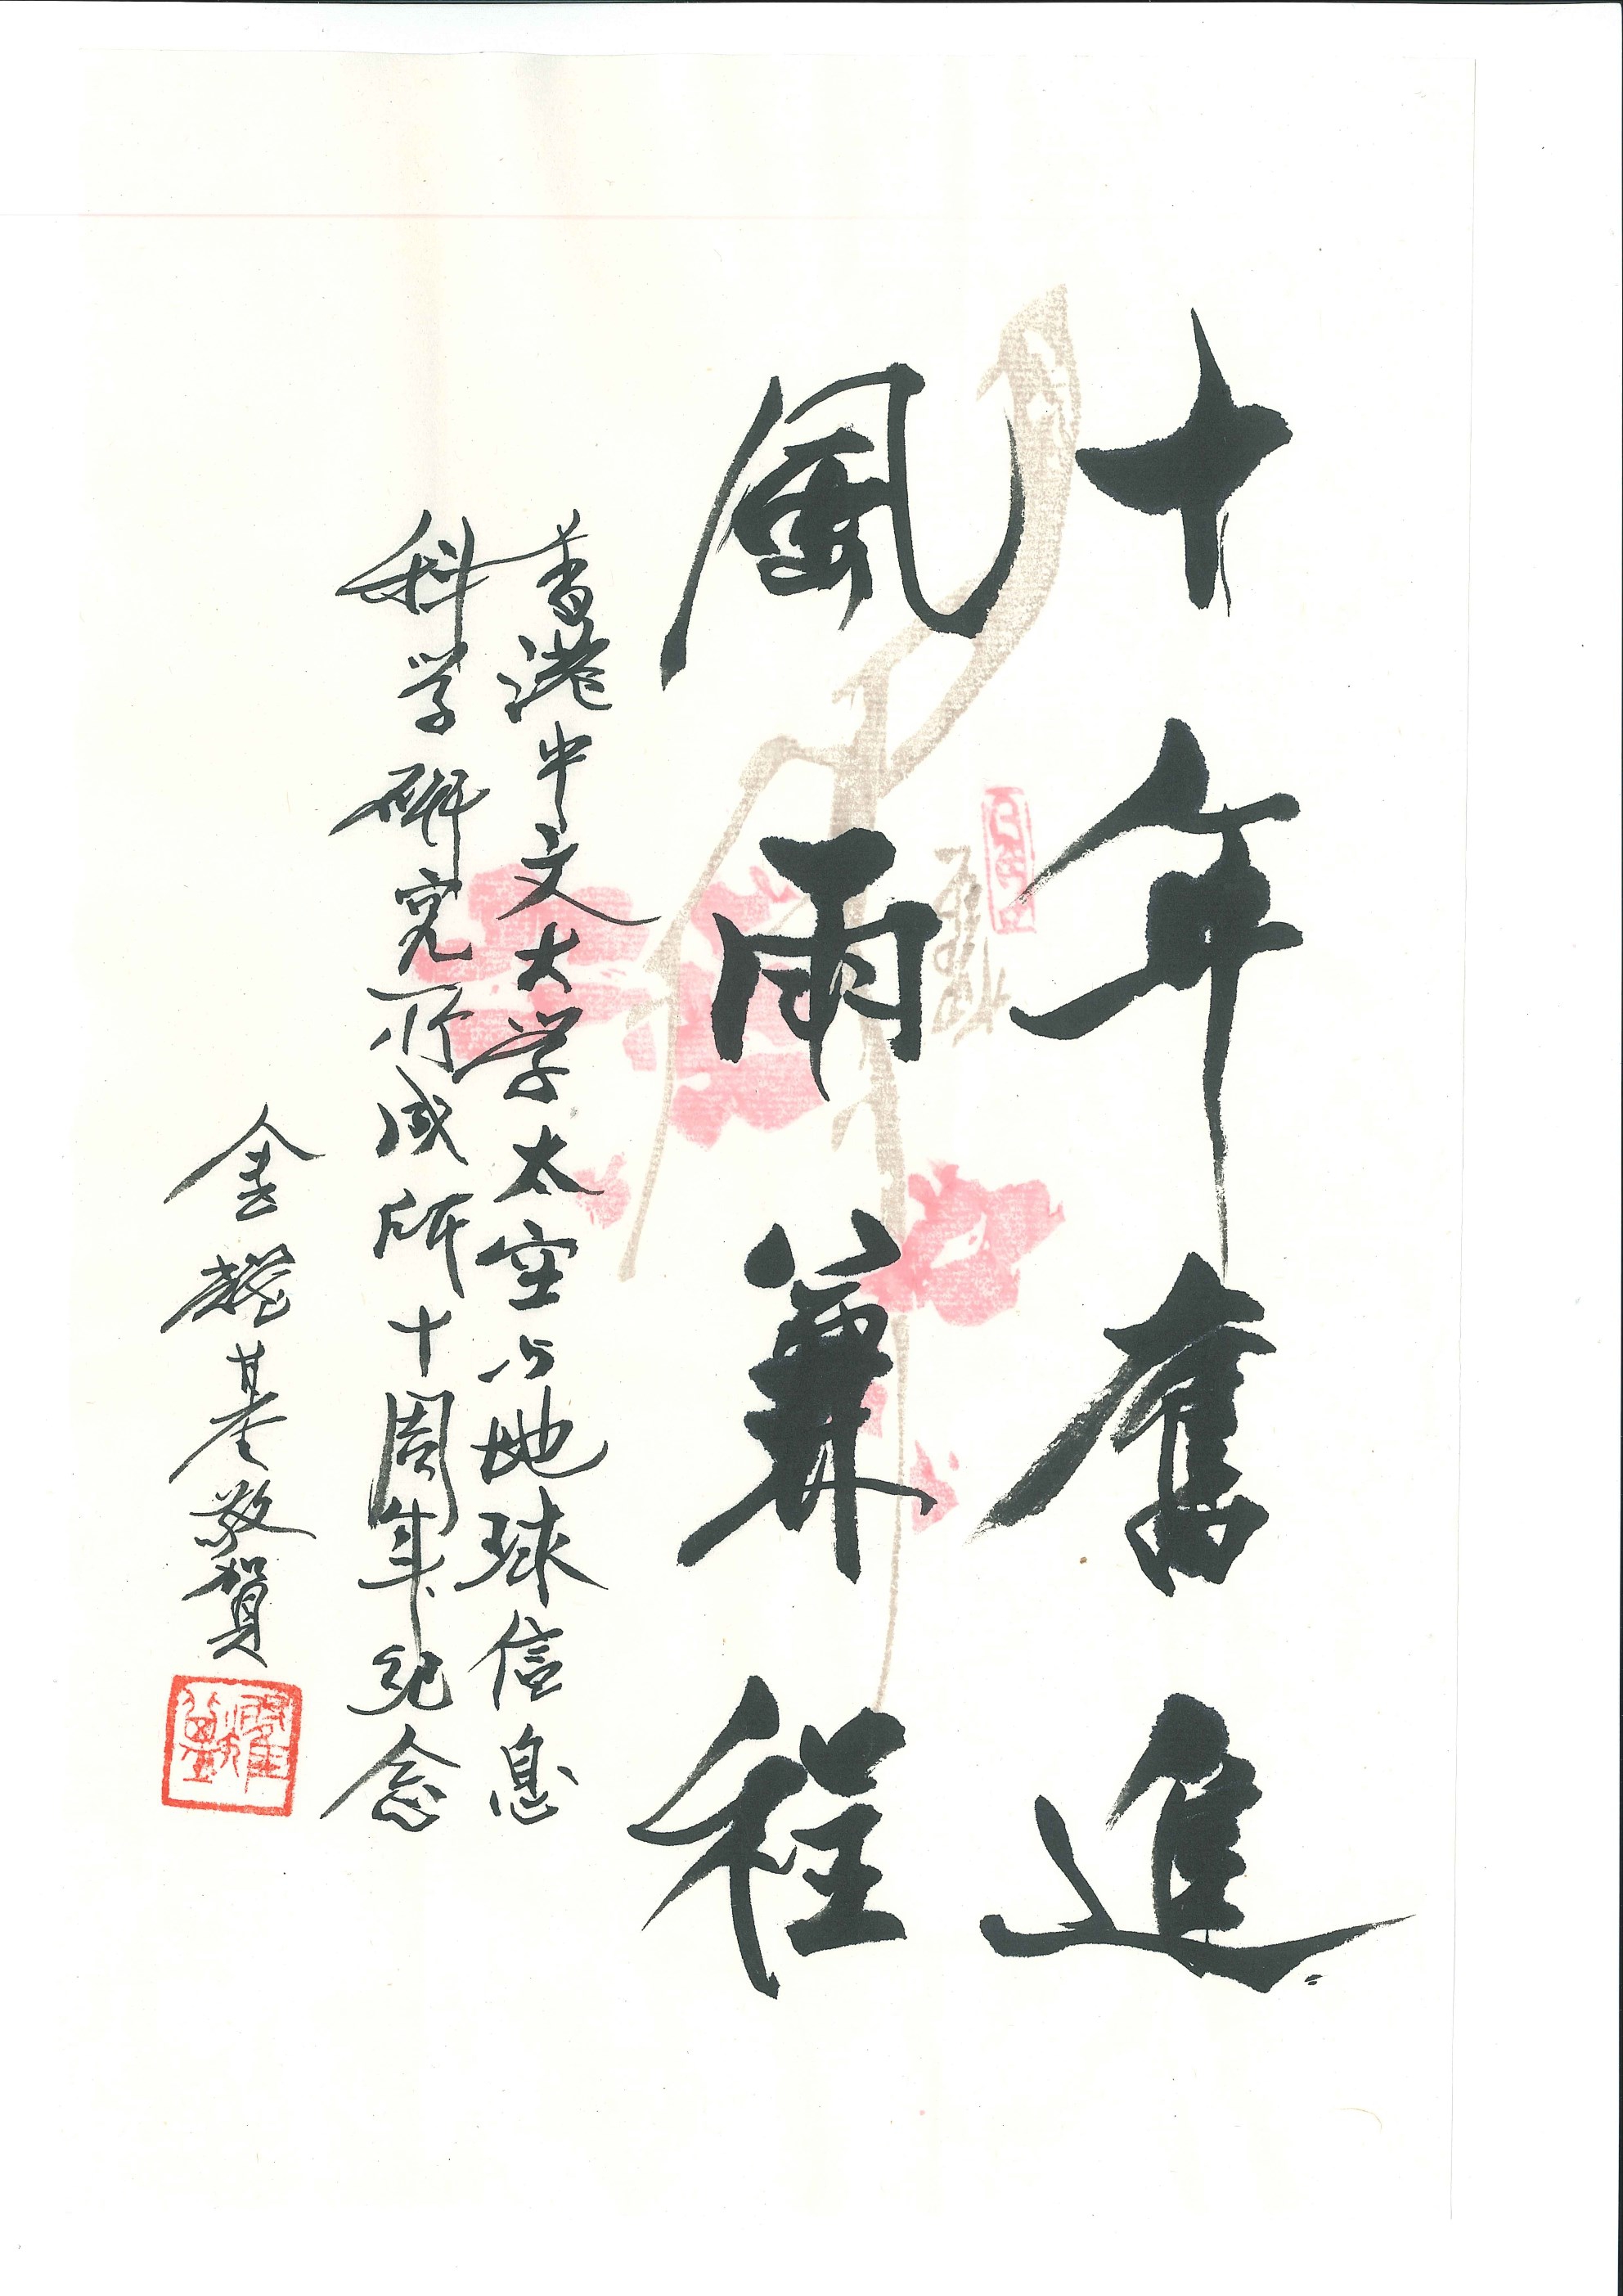 十年奮進
風雨兼程
香港中文大学太空与地球信息
科学研究所成所十周年紀念
金耀基敬賀